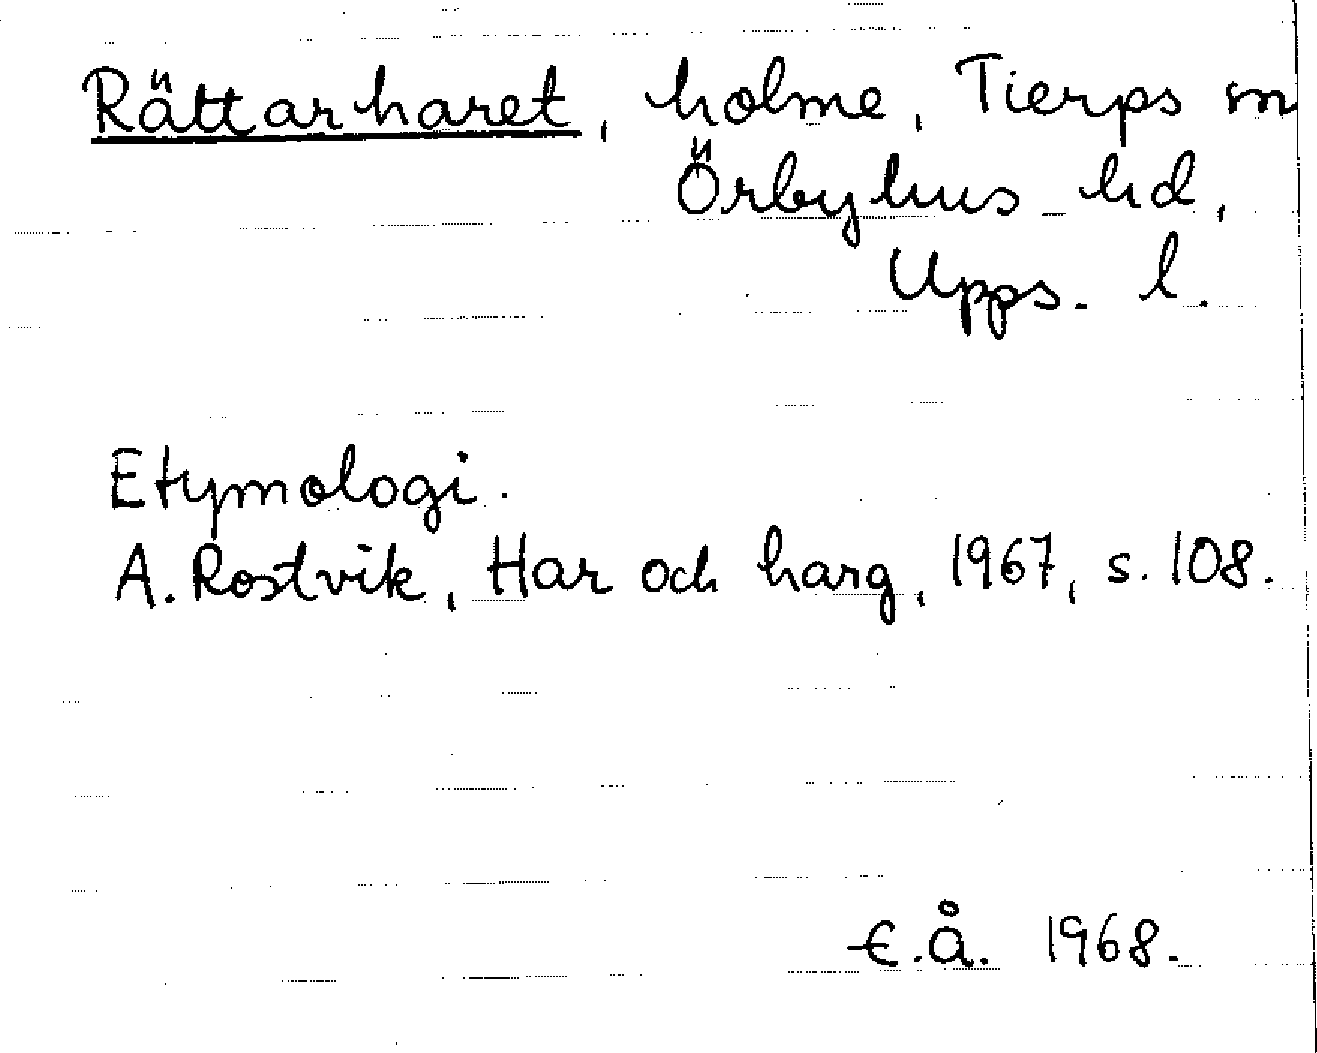 Rättarharet, holme, Tierps sn
Örbyhus hd,
Upps. l.
Etymologi.
A. Rostvik, Har och harg, 1967, s. 108.
E.Å. 1968.